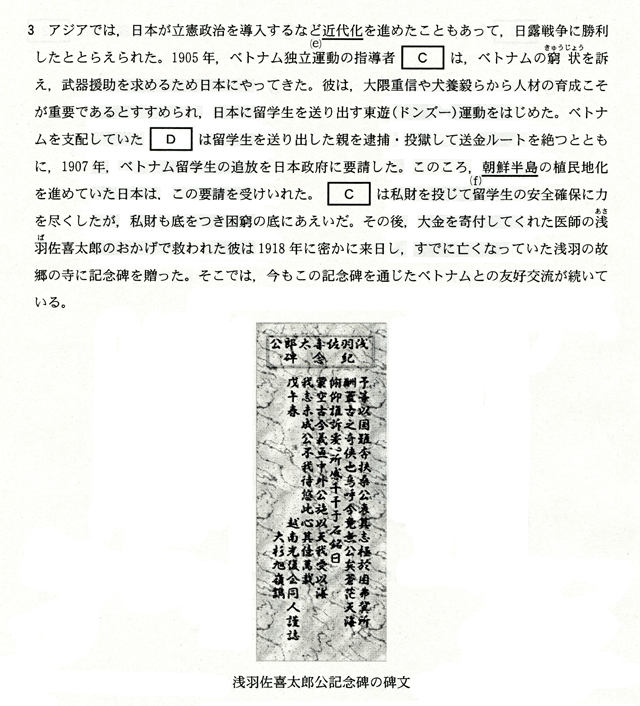 3 アジアでは，日本が立憲政治を導入するなど近代化を進めたこともあって，日露戦争に勝利
(e)
きゅうじょう
したととらえられた。1905年，ベトナム独立運動の指導者 C は，ベトナムの窮状を訴
え，武器援助を求めるため日本にやってきた。彼は，大隈重信や犬養毅らから人材の育成こそ
が重要であるとすすめられ，日本に留学生を送り出す東遊(ドンズー)運動をはじめた。ベトナ
ムを支配していた D は留学生を送り出した親を逮捕・投獄して送金ルートを絶つととも
に，1907年，ベトナム留学生の追放を日本政府に要請した。このころ，朝鮮半島の植民地化
(f)
を進めていた日本は，この要請を受けいれた。 C は私財を投じて留学生の安全確保に力
あさ
を尽くしたが，私財も底をつき困窮の底にあえいだ。その後，大金を寄付してくれた医師の浅
ば
羽佐喜太郎のおかげで救われた彼は1918年に密かに来日し，すでに亡くなっていた浅羽の故
郷の寺に記念碑を贈った。そこでは，今もこの記念碑を通じたベトナムとの友好交流が続いて
いる。
浅羽佐喜太郎公
紀念碑
予等以国難奔扶桑公哀其志拯於困弗冀所
酬蓋古之奇侠也嗚呼今竟無公矣蒼茫天海
俯仰誰訴爰所感于石銘曰
豪空古今義中外公施以天我受以海
我志未成公不我待悠悠此心其億萬載
戊午春
越南光復会同人謹誌
大杉旭嶺鐫
浅羽佐喜太郎公記念碑の碑文